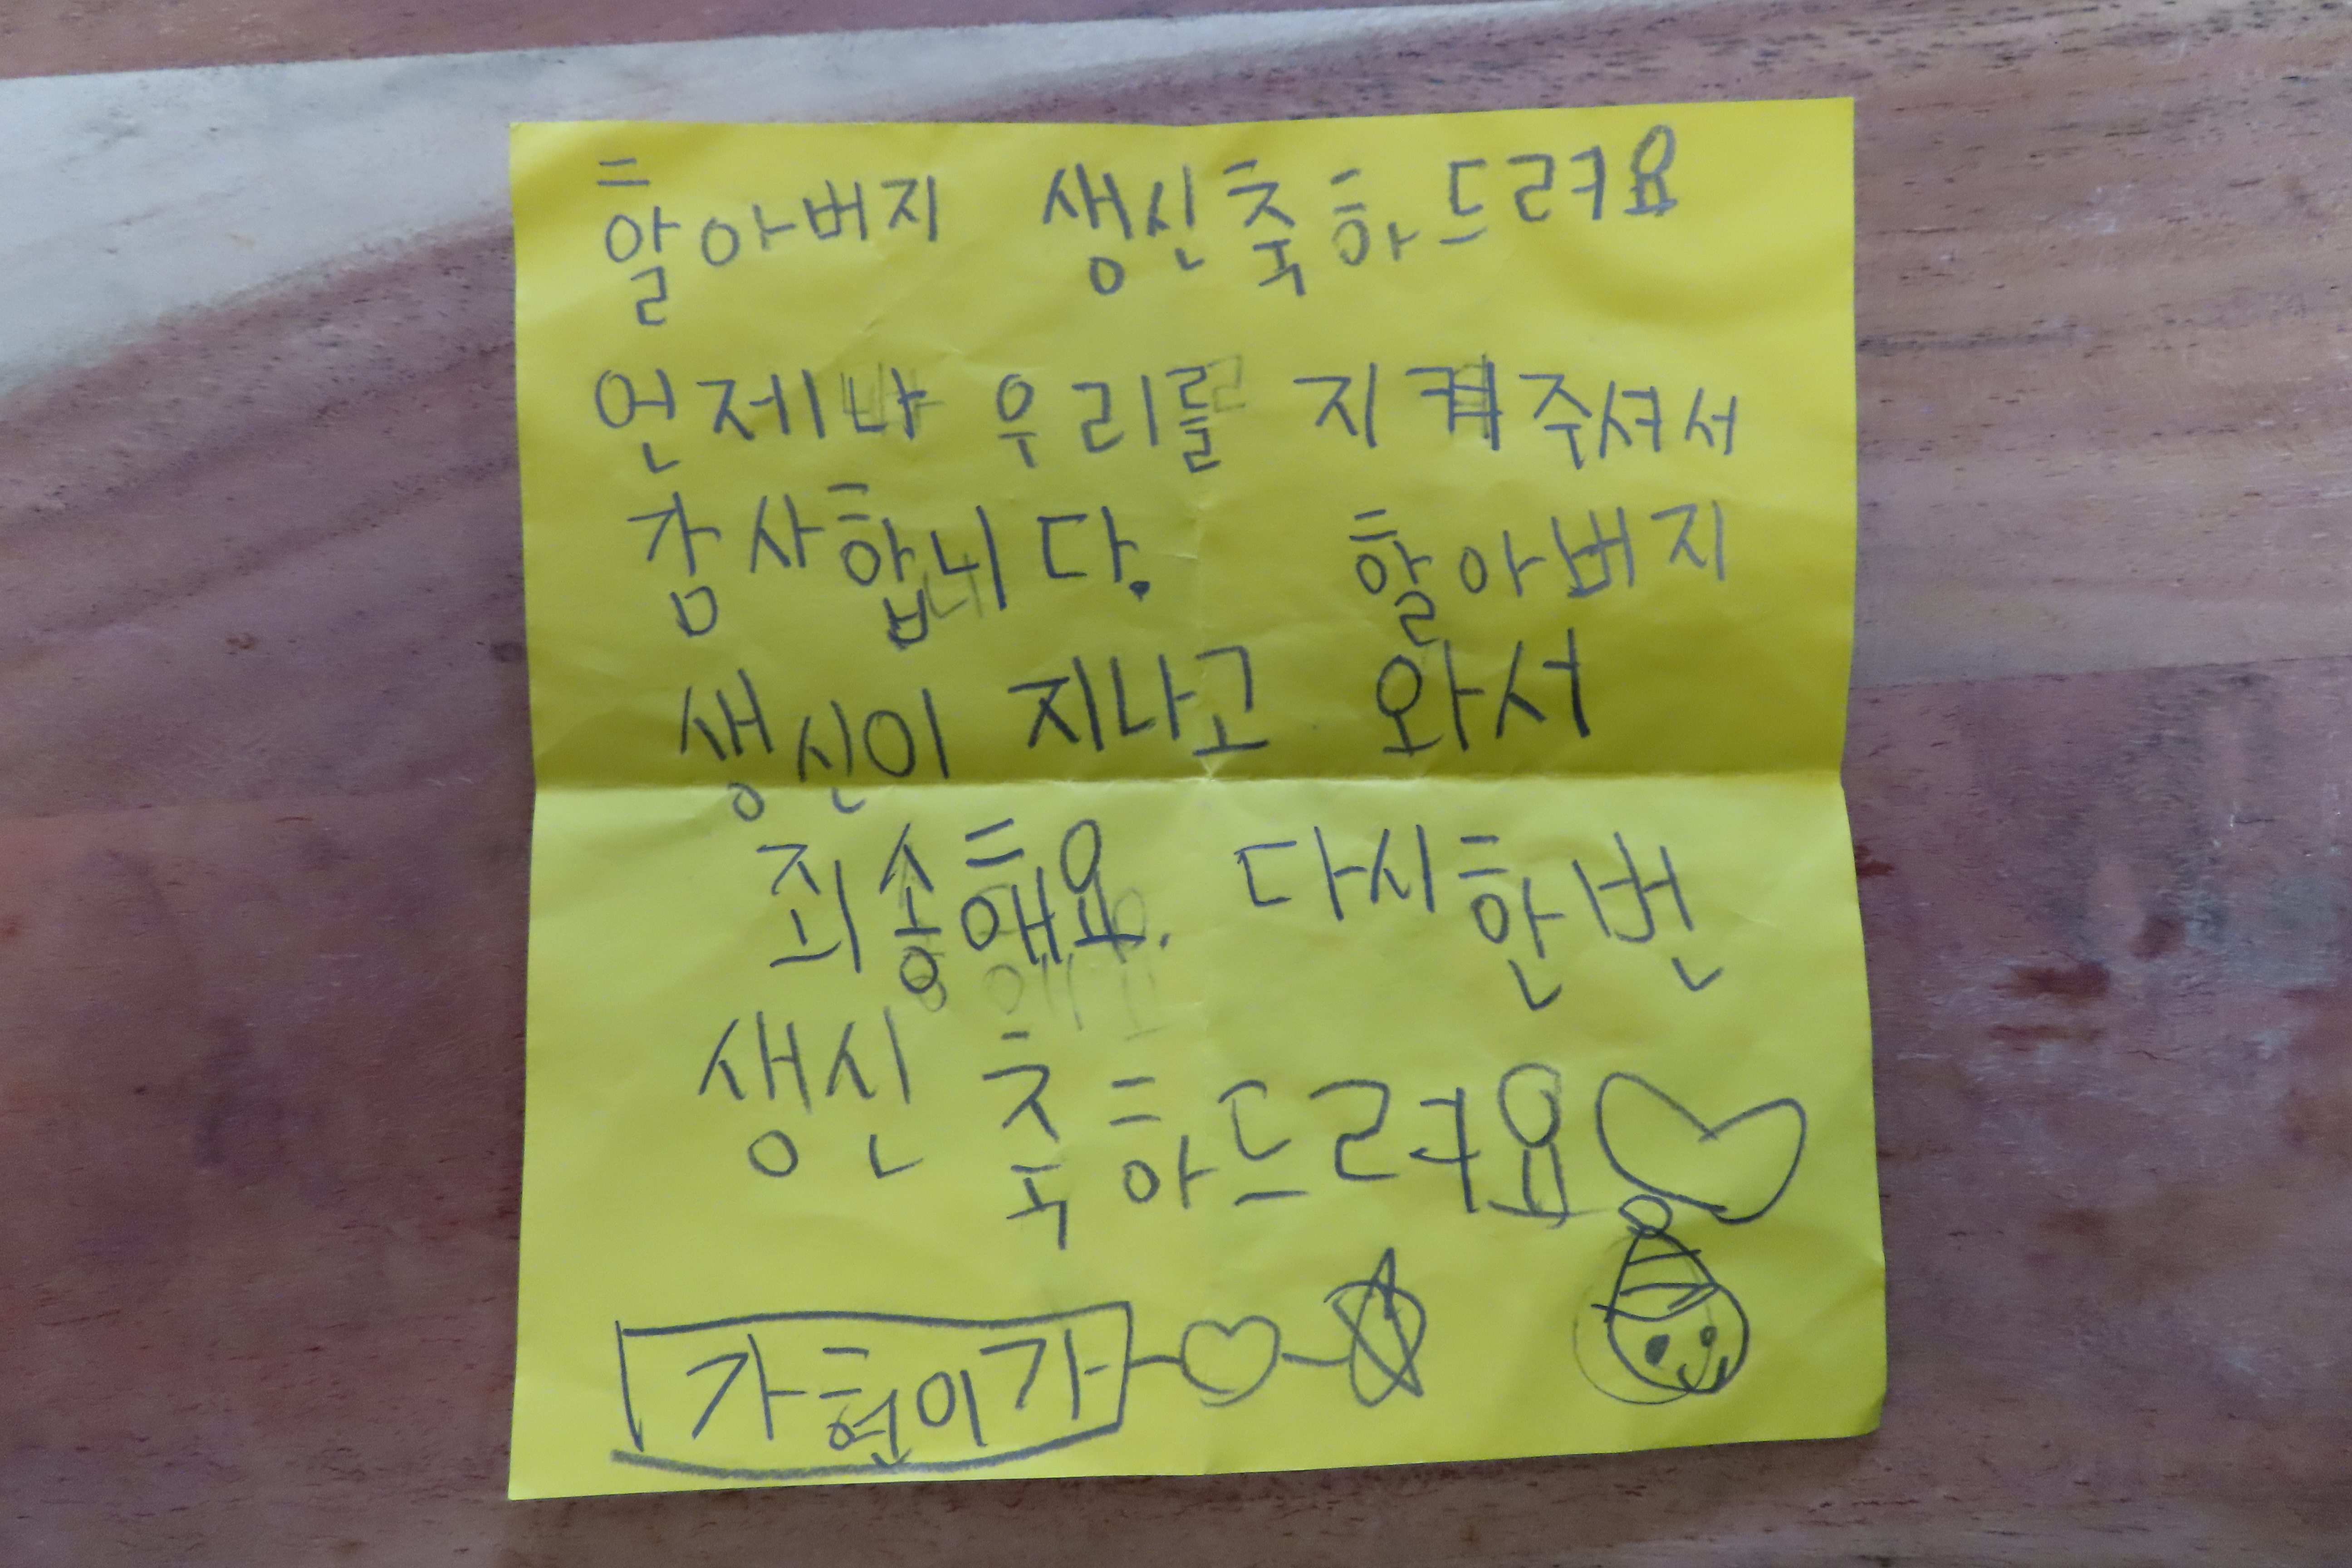 할아버지 생신축하드려요
언제나 우리를 지켜주셔서
감사합니다. 할아버지
생신이 지나고 와서
죄송해요. 다시한번
생신 축하드려요
가현이가